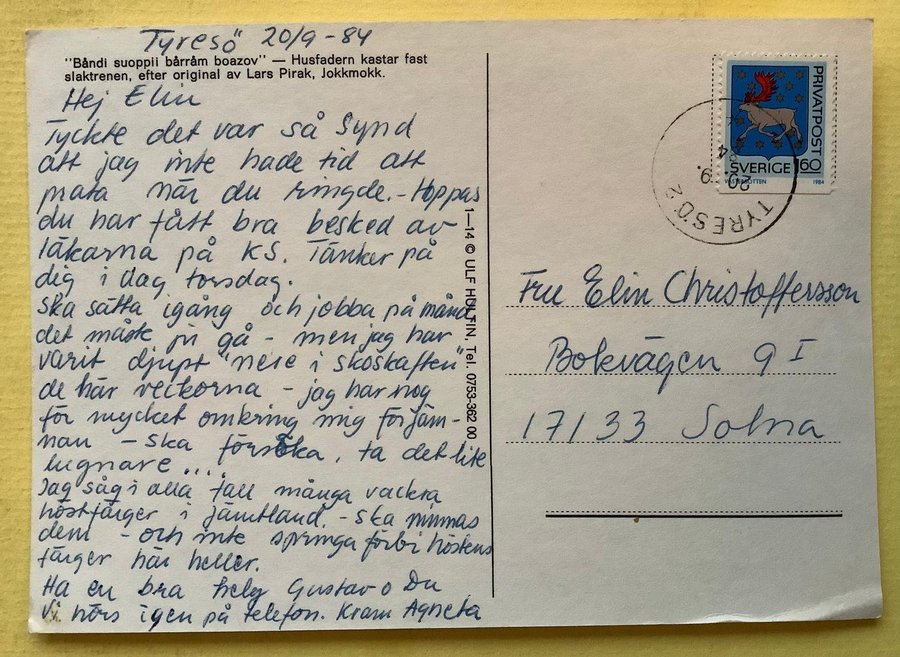 Tyresö 20/9 - 84
"Båndi suoppii bårråm boazov" — Husfadern kastar fast
slaktrenen, efter original av Lars Pirak, Jokkmokk.
Hej Elin
Tyckte det var så synd
att jag inte hade tid att
prata när du ringde. - Hoppas
du har fått bra besked av
läkarna på KS. Tänker på
dig i dag, torsdag.
Ska sätta igång och jobba på månd.
det måste ju gå - men jag har
varit djupt "nere i skoskaften"
de här veckorna - jag har nog
för mycket omkring mig förjäm-
nan - ska försöka ta det lite
lugnare ...
Jag såg i alla fall många vackra
höstfärger i Jämtland. - ska minnas
dem - och inte springa förbi höstens
färger här heller.
Ha en bra helg Gustav o Du
Vi hörs igen på telefon. Kram Agneta
1—14 © ULF HULTIN, Tel. 0753-362 00
PRIVATPOST
SVERIGE 60
VÄSTERBOTTEN 1984
TYRESÖ 2
20.9.84
Fru Elin Christoffersson
Bokvägen 9 I
171 33 Solna